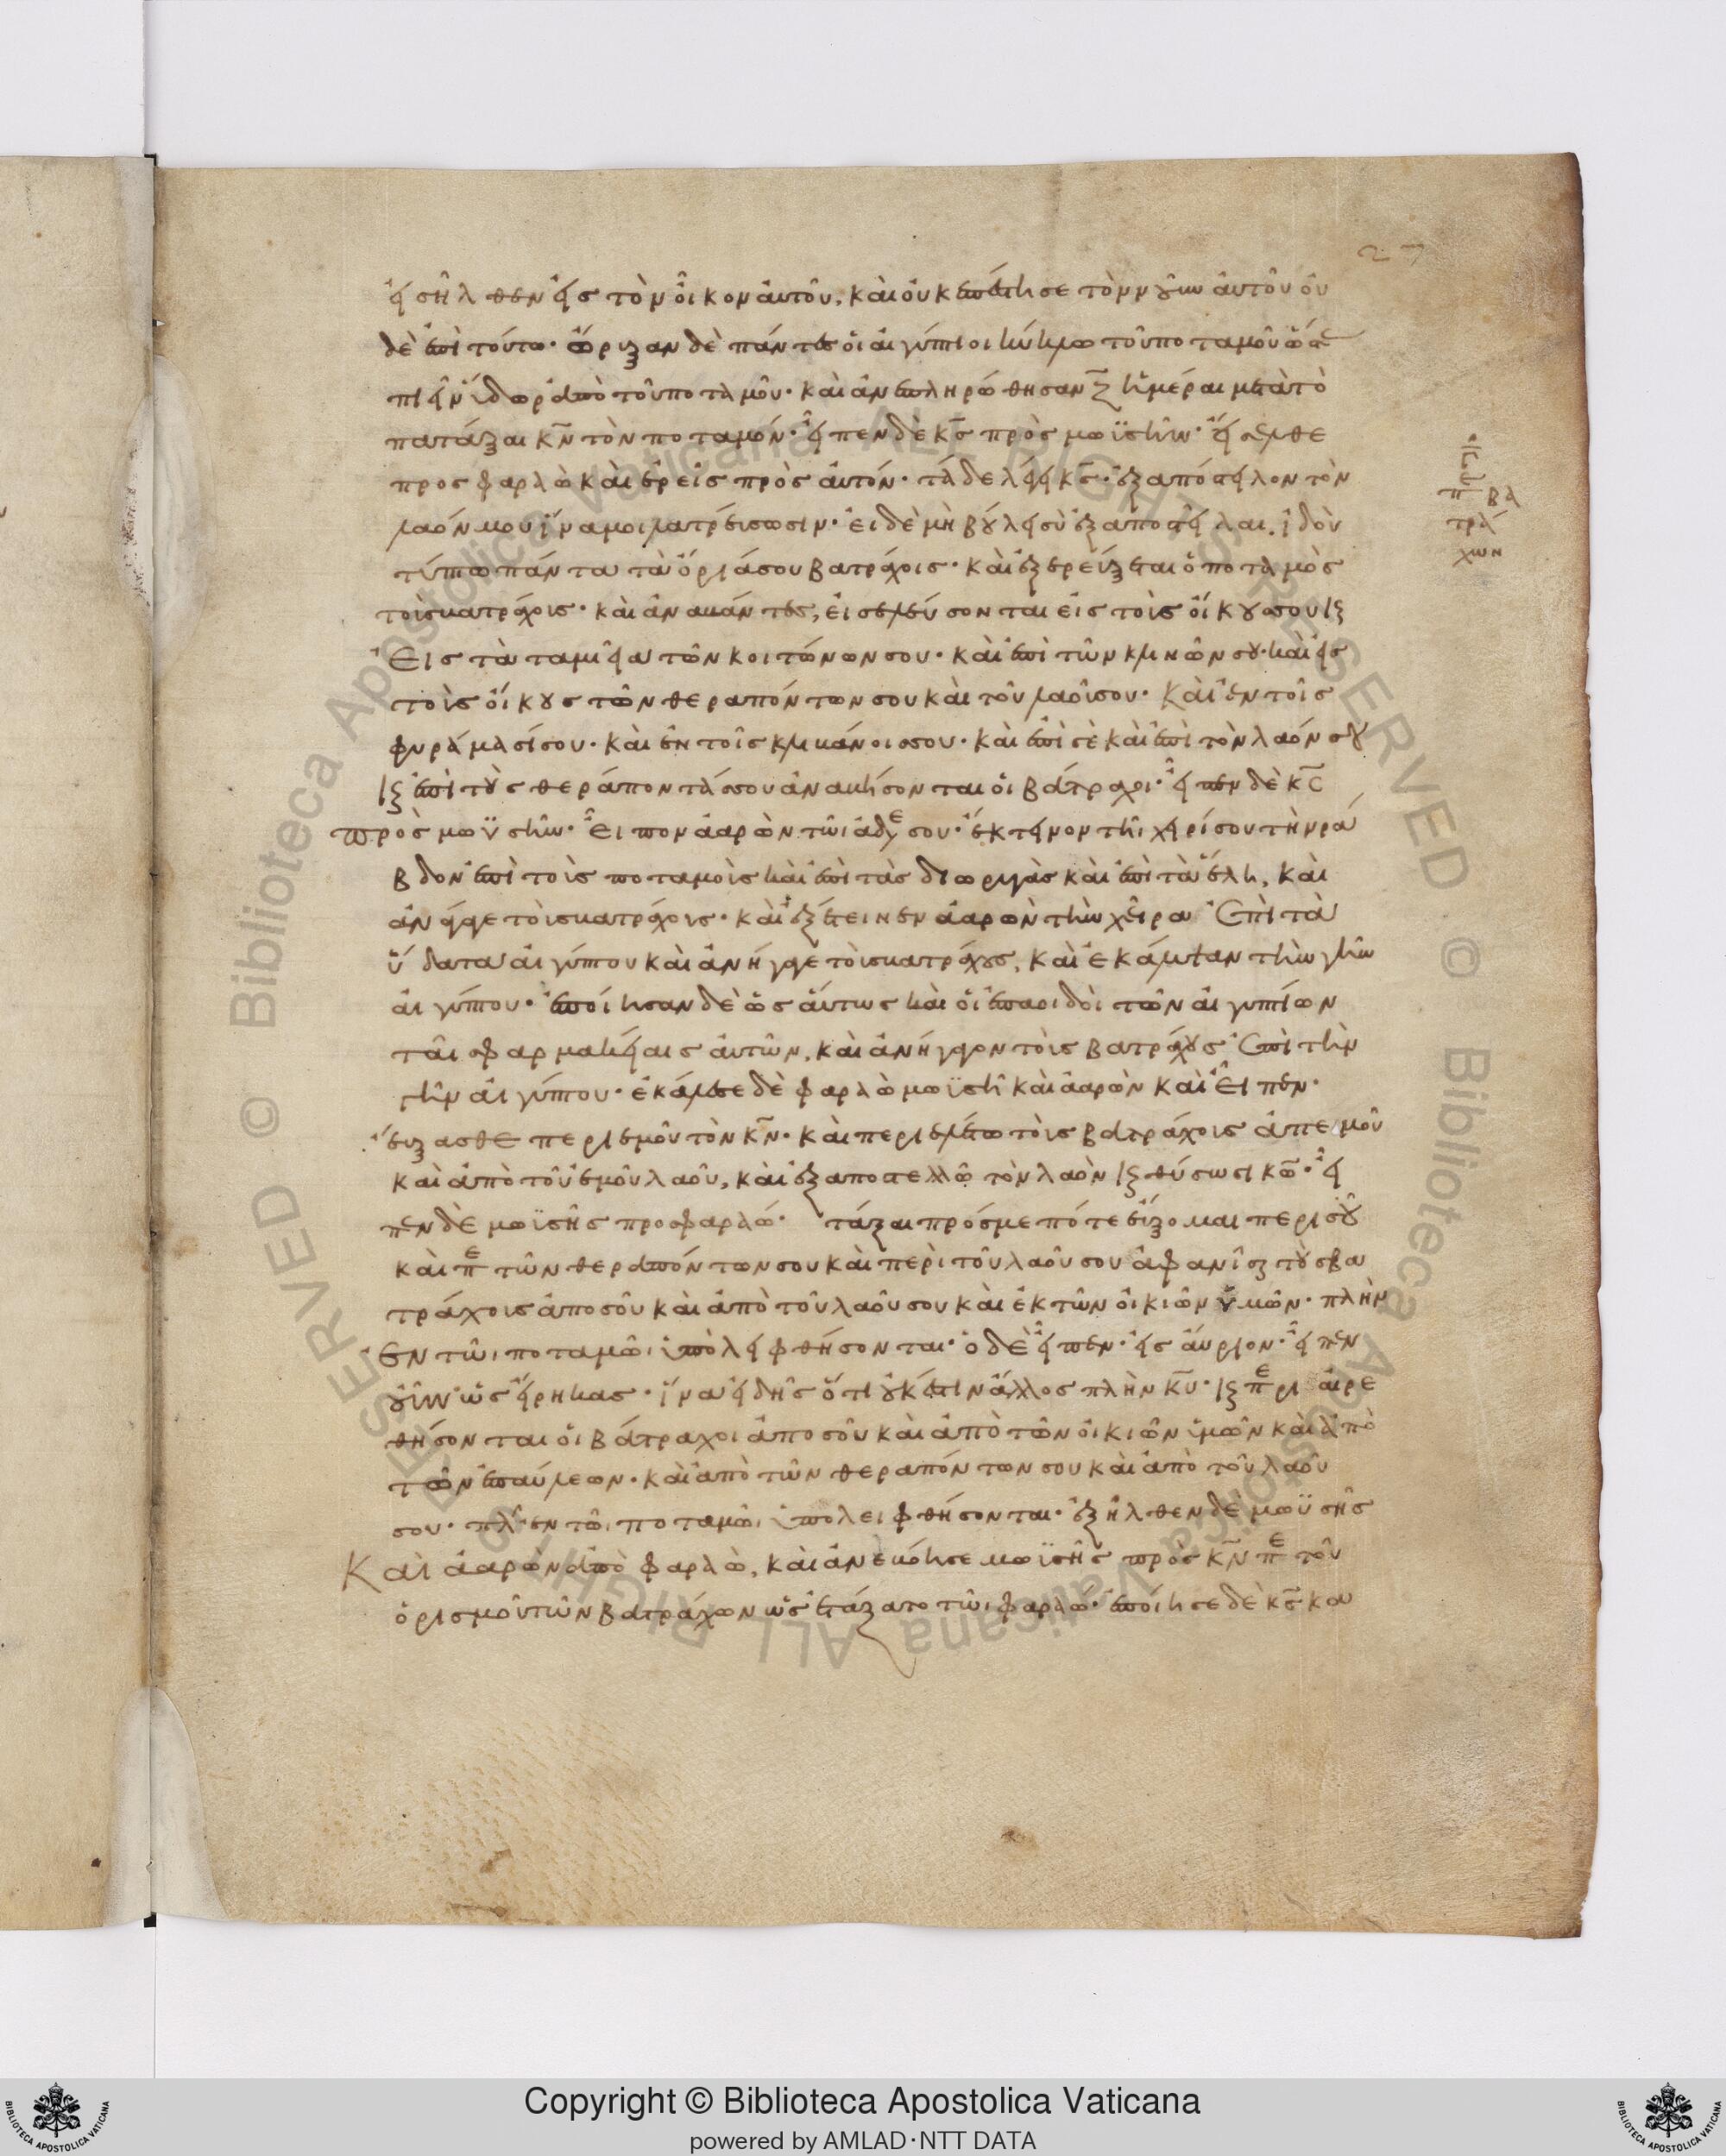 27
εἰσῆλθεν εἰς τὸν οἶκον αὐτοῦ, καὶ οὐκ ἐπέστησε τὸν νοῦν αὐτοῦ οὐ
δὲ ἐπὶ τούτω· ὤρυξαν δὲ πάντες οἱ αἰγύπτιοι κύκλω τοῦ ποταμοῦ ὥστε
πιεῖν ὕδωρ ἀπὸ τοῦ ποταμοῦ· καὶ ἀνεπληρώθησαν ζ̅ ἡμέραι μετὰ τὸ
πατάξαι κ̅ν̅ τὸν ποταμόν· εἶπεν δὲ κ̅ς̅ πρὸς μωϋσῆν· εἴσελθε
προς φαραὼ καὶ ἐρεῖς πρὸς αὐτόν· τάδε λέγει κ̅ς̅· ἐξαπόστειλον τὸν
λαόν μου ἵνα μοι λατρεύσωσιν· εἰ δὲ μὴ βούλει σὺ ἐξαποστεῖλαι, ἰδοὺ
τύπτω πάντα τὰ ὅριά σου βατράχοις· καὶ ἐξερεύξεται ὁ ποταμὸς
τοὺς βατράχους· καὶ ἀναβάντες, εἰσελεύσονται εἰς τοὺς οἴκους σου ϗ
εἰς τὰ ταμιεῖα τῶν κοιτώνων σου· καὶ ἐπὶ τῶν κλινῶν σου· καὶ εἰς
τοὺς οἴκους τῶν θεραπόντων σου καὶ τοῦ λαοῦ σου· καὶ ἐν τοῖς
φυράμασί σου· καὶ ἐν τοῖς κλιβάνοις σου· καὶ ἐπὶ σὲ καὶ ἐπὶ τὸν λαόν σου
ϗ ἐπὶ τοὺς θεράποντάς σου ἀναβήσονται οἱ βάτραχοι· εἶπεν δὲ κ̅ς̅
πρὸς μωϋσῆν· εἶπον ἀαρὼν τῶι ἀδε σου· ἔκτεινον τῆι χειρί σου τὴν ρά
βδον ἐπὶ τοὺς ποταμοὺς καὶ ἐπὶ τὰς διωρυγὰς καὶ ἐπὶ τὰ ἕλη, καὶ
ἀνάγαγε τοὺς βατράχους· καὶ ἐξέτεινεν ἀαρὼν τὴν χεῖρα ἐπὶ τὰ
ὕδατα αἰγύπτου καὶ ἀνήγαγε τοὺς βατράχους, καὶ ἐκάλυψαν τὴν γῆν
αἰγύπτου· ἐποίησαν δὲ ὡσαύτως καὶ οἱ ἐπαοιδοὶ τῶν αἰγυπτίων
ταῖς φαρμακείαις αὐτῶν, καὶ ἀνήγαγον τοὺς βατράχους ἐπὶ τὴν
γῆν αἰγύπτου· ἐκάλεσε δὲ φαραὼ μωϋσῆ καὶ ἀαρὼν καὶ εἶπεν·
εὔξασθε περὶ ἐμοῦ τὸν κ̅ν̅· καὶ περιελέτω τοὺς βατράχους ἀπ' ἐμοῦ
καὶ ἀπὸ τοῦ ἐμοῦ λαοῦ, καὶ ἐξαποστελλῶ τὸν λαὸν ϗ θύσωσι κ̅ω̅· εἶ
πεν δὲ μωϋσῆς προς φαραώ· τάξαι πρός με πότε εὔξομαι περὶ σοῦ
καὶ πε τῶν θεραπόντων σου καὶ περὶ τοῦ λαοῦ σου ἀφανίσαι τοὺς βα
τράχους ἀπο σοῦ καὶ ἀπὸ τοῦ λαοῦ σου καὶ ἐκ τῶν οἰκιῶν ὑμῶν· πλὴν
ἐν τῶι ποταμῶι ὑπολειφθήσονται· ὁ δὲ εἶπεν· εἰς αὔριον· εἶπεν
οὖν ὡς εἴρηκας· ἵνα εἰδῆς ὅτι οὐκ ἔστιν ἄλλος πλὴν κ̅υ̅· ϗ περιαιρε
θήσονται οἱ βάτραχοι ἀπο σοῦ καὶ ἀπὸ τῶν οἰκιῶν ὑμῶν καὶ ἀπὸ
τῶν ἐπαύλεων· καὶ ἀπὸ τῶν θεραπόντων σου καὶ ἀπὸ τοῦ λαοῦ
σου· πλὴν ἐν τῶι ποταμῶι ὑπολειφθήσονται· ἐξῆλθεν δὲ μωϋσῆς
Καὶ ἀαρὼν ἀπὸ φαραὼ, καὶ ἀνεβόησε μωϋσῆς πρὸς κ̅ν̅ πε τοῦ
ὁρισμοῦ τῶν βατράχων ὡς ἐτάξατο τῶι φαραώ· ἐποίησε δὲ κ̅ς̅ κα
βα
τρά
χων